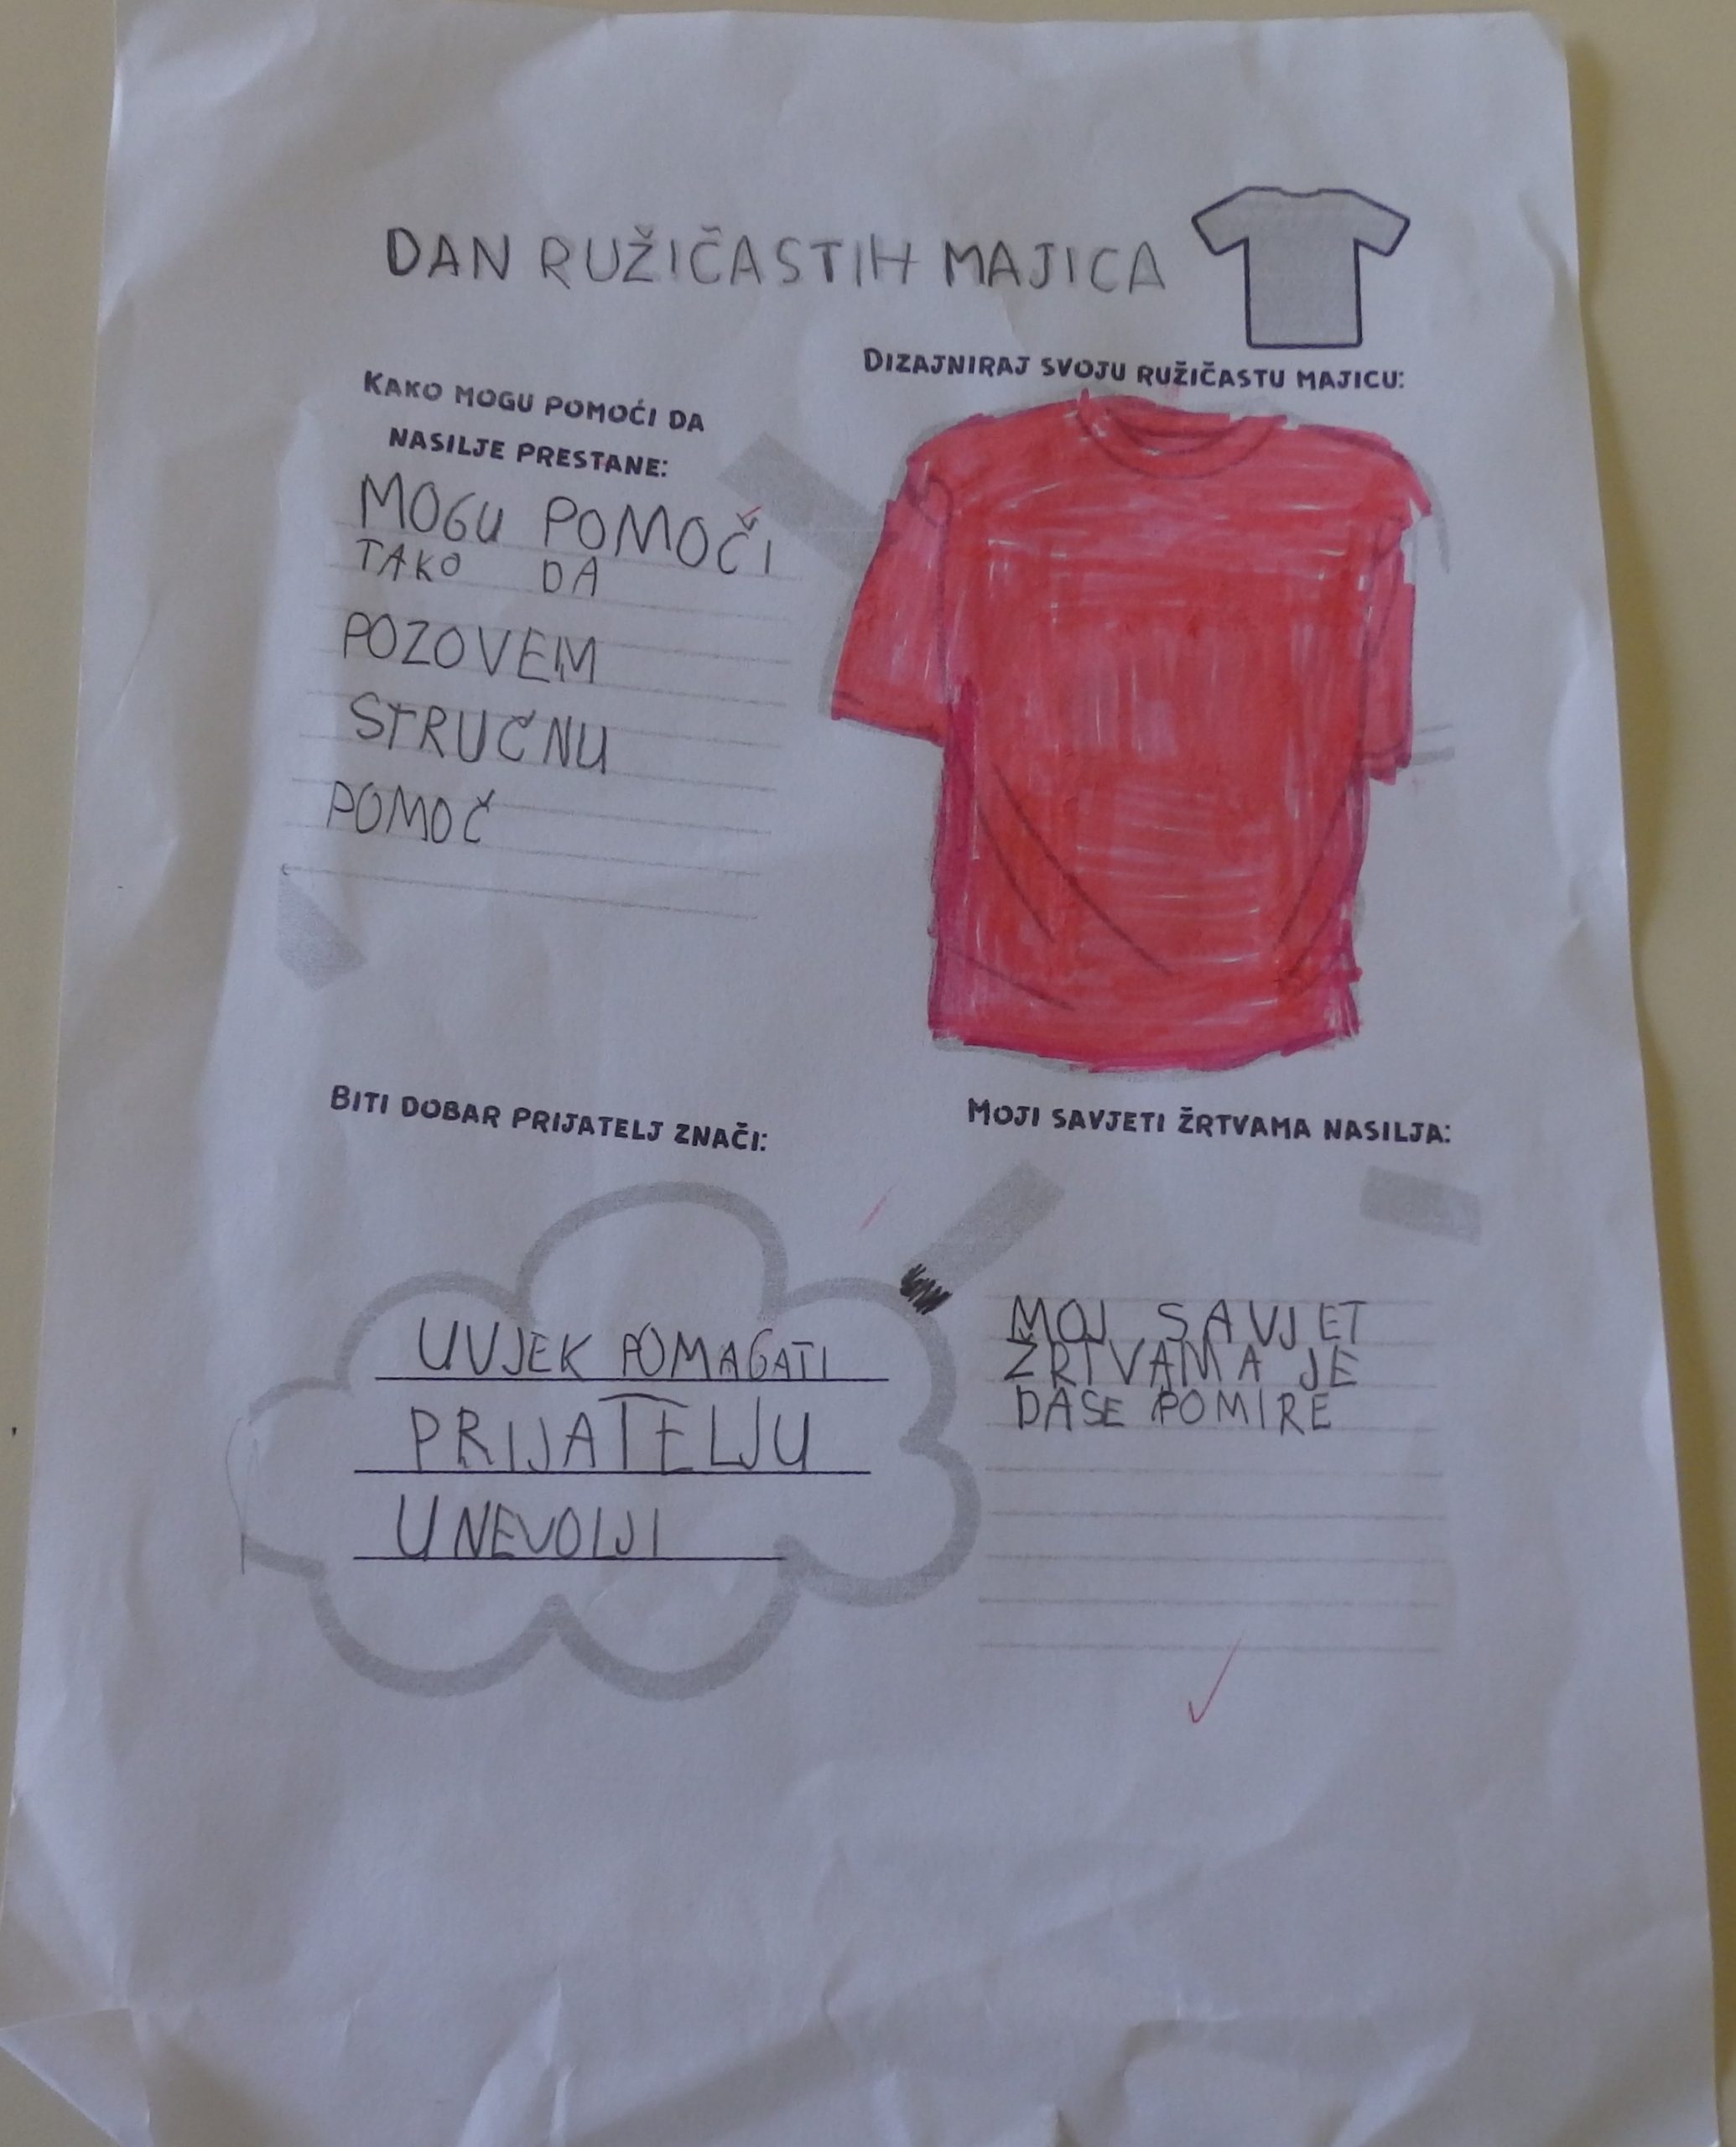 DAN RUŽIČASTIH MAJICA
KAKO MOGU POMOĆI DA
NASILJE PRESTANE:
MOGU POMOČI
TAKO DA
POZOVEM
STRUČNU
POMOČ
DIZAJNIRAJ SVOJU RUŽIČASTU MAJICU:
BITI DOBAR PRIJATELJ ZNAČI:
UVJEK POMAGATI
PRIJATELJU
U NEVOLJI
MOJI SAVJETI ŽRTVAMA NASILJA:
MOJ SAVJET
ŽRTVAMA JE
DASE POMIRE